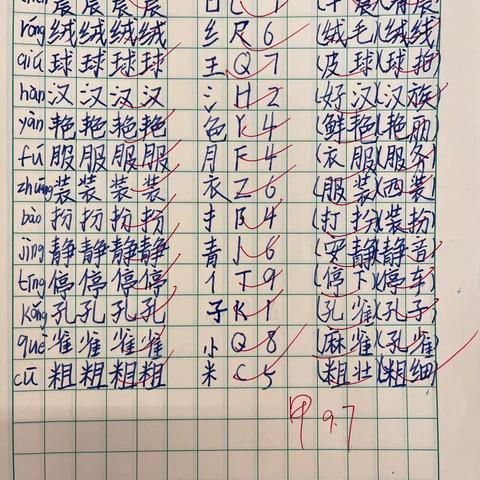 晨 晨 晨 晨 日 7 (早晨)(清晨)
róng 绒 绒 绒 绒 纟 R 6 (绒毛)(绒线)
qiú 球 球 球 球 王 Q 7 (皮球)(球拍)
hàn 汉 汉 汉 汉 氵 H 2 (好汉)(汉族)
yàn 艳 艳 艳 艳 色 Y 4 (鲜艳)(艳丽)
fú 服 服 服 服 月 F 4 (衣服)(服务)
zhuāng 装 装 装 装 衣 Z 6 (服装)(西装)
bàn 扮 扮 扮 扮 扌 B 4 (打扮)(装扮)
jìng 静 静 静 静 青 J 6 (安静)(静音)
tíng 停 停 停 停 亻 T 9 (停下)(停车)
kǒng 孔 孔 孔 孔 子 K 1 (孔雀)(孔子)
què 雀 雀 雀 雀 小 Q 8 (麻雀)(孔雀)
cū 粗 粗 粗 粗 米 C 5 (粗壮)(粗细)
甲 9.7